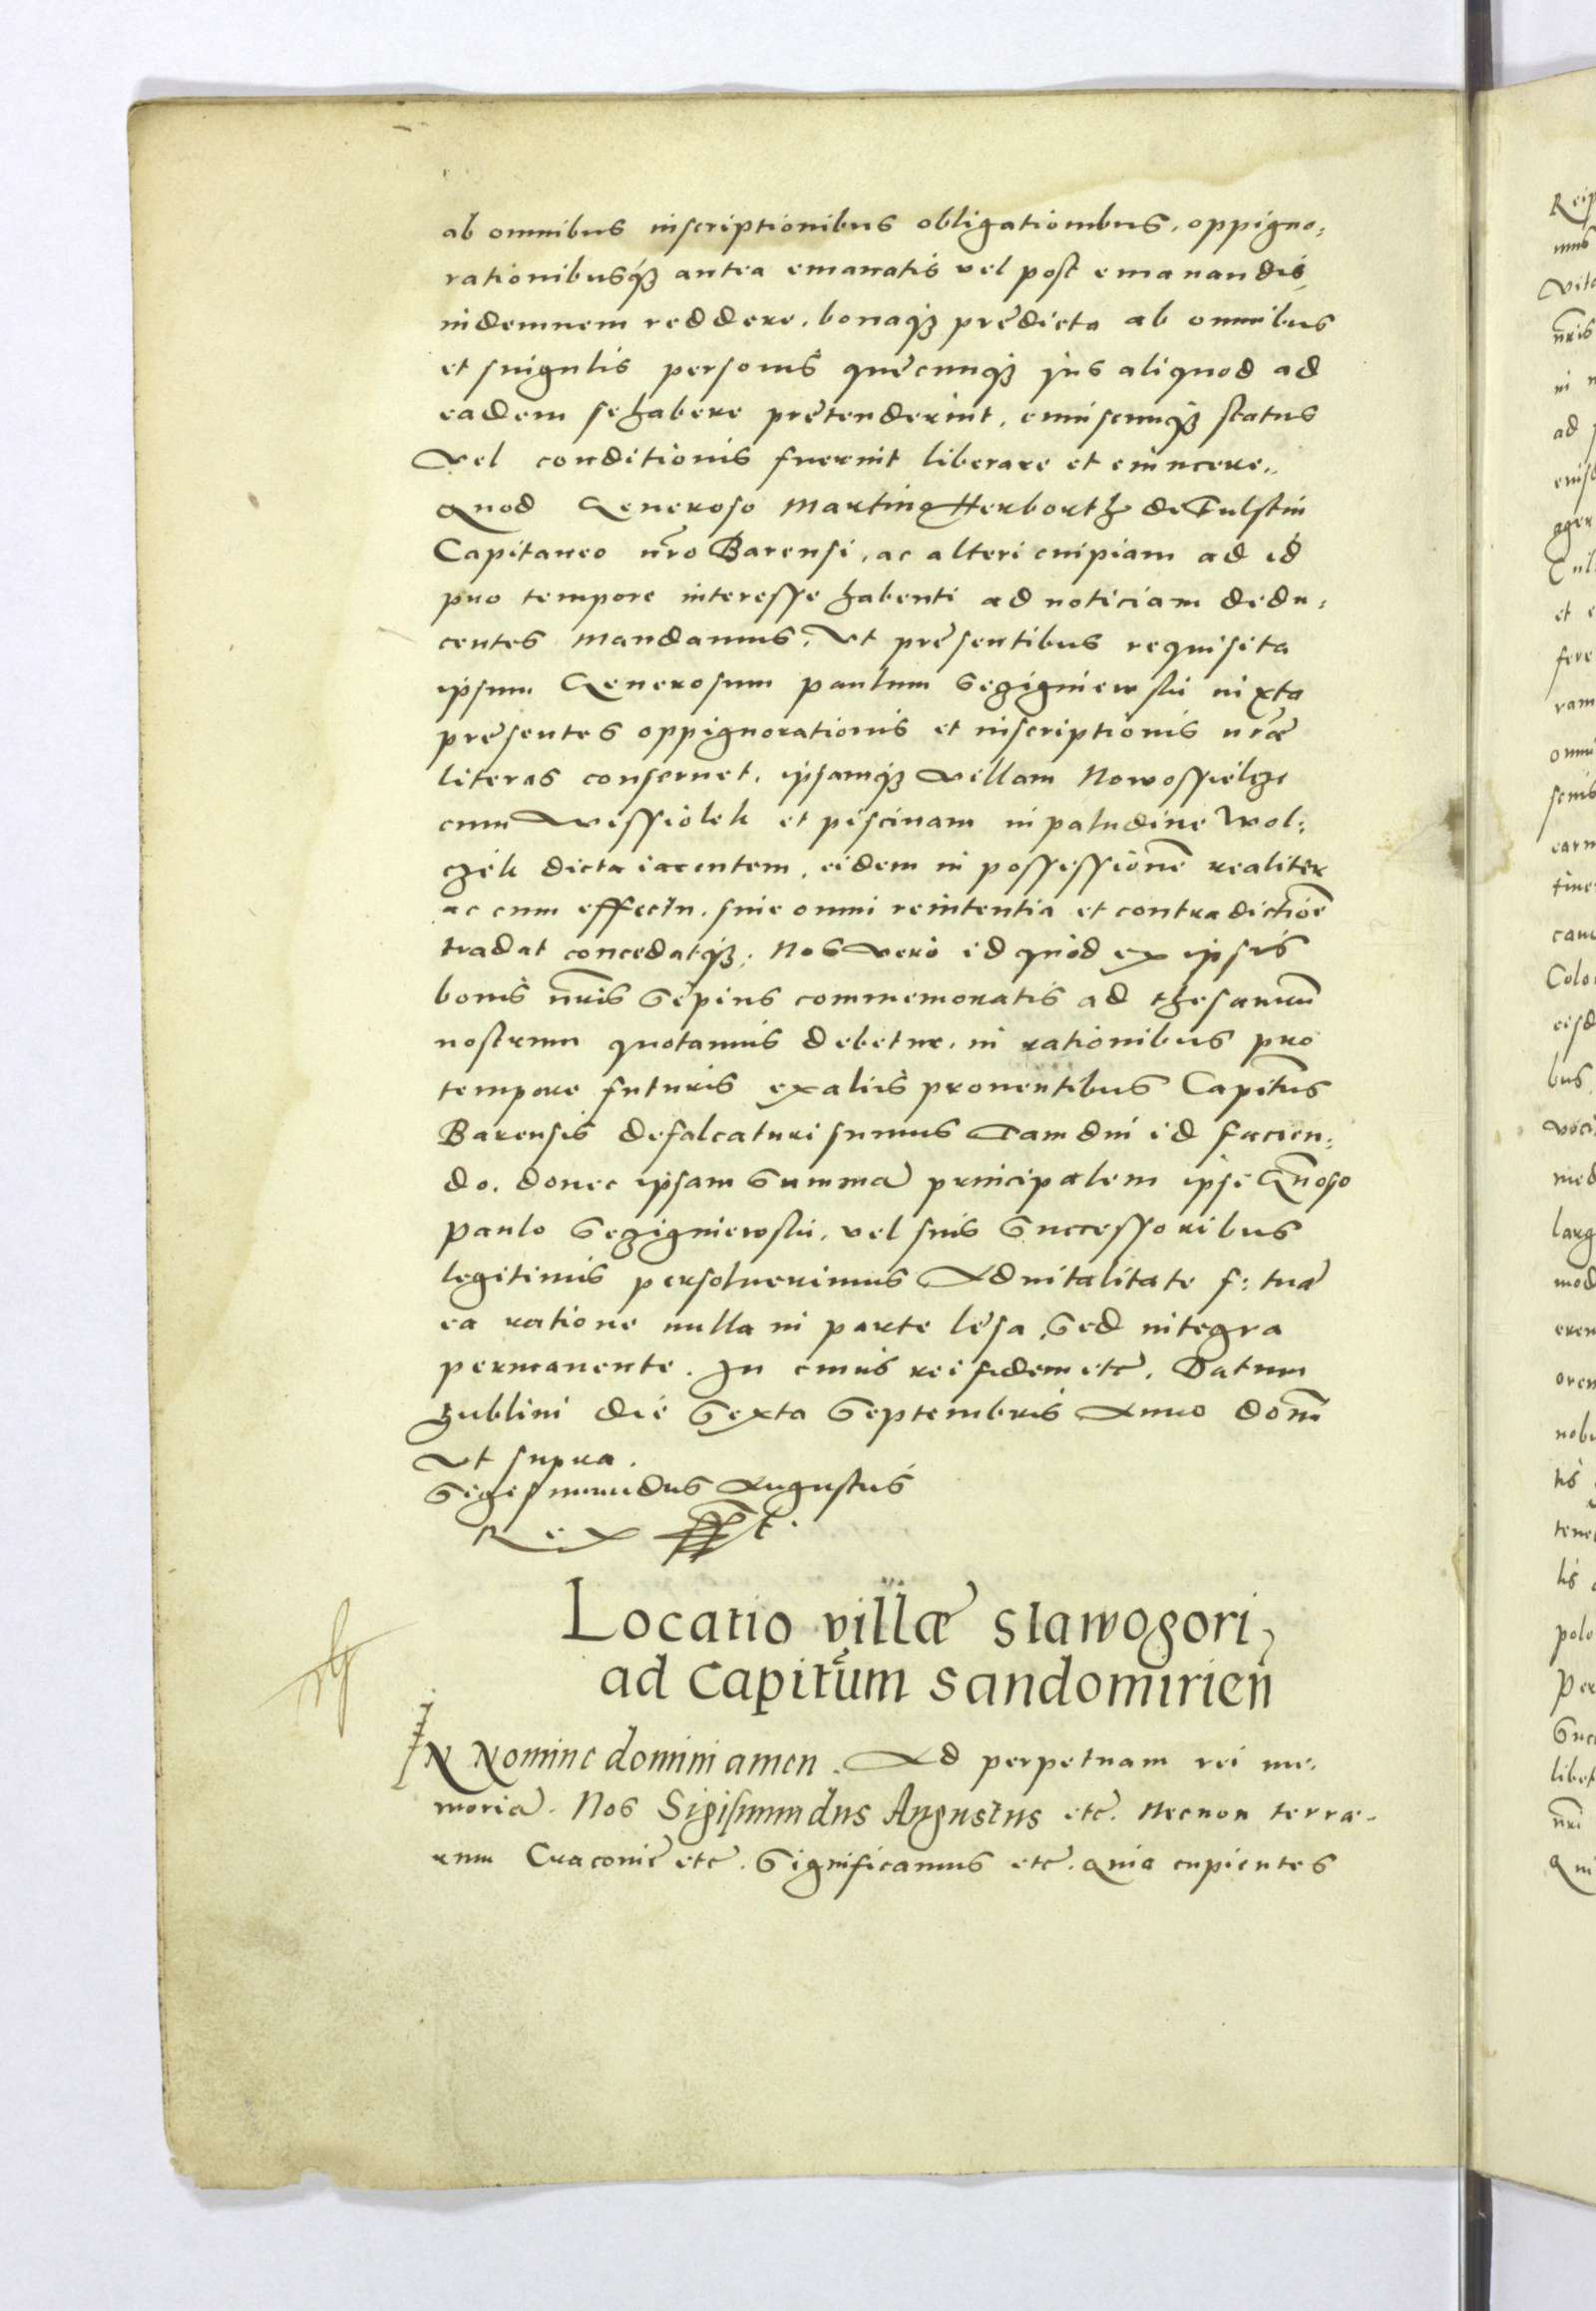 ab omnibus inscriptionibus obligationibus, oppigno:
rationibusq₃ antea emanatis vel post emanandis,
indemnem reddere, bonaq₃ prędicta ab omnibus
et singulis personis quęcunq₃ jus aliquod ad
eadem se habere prętenderint, cuiuscunq₃ status
vel conditionis fuerint liberare et euincere.
Quod Generoso Martino Herborth de Fulstin
Capitaneo nr̃o Barensi, ac alteri cuipiam ad id
pro tempore interesse habenti ad noticiam dedu:
centes mandamus, Vt pręsentibus requisita
ipsum Generosum Paulum Seczigniewski iuxta
pręsentes oppignorationis et inscriptionis nr̃æ
literas conseruet, ipsamq₃ villam Nowossielcze
cum Wessiolek et piscinam in paludine Wol:
czek dicta iacentem, eidem in possessionẽ realiter
ac cum effectu, sine omni renitentia et contradictiõe
tradat concedatq₃. Nos vero id quod ex ipsis
bonis nr̃is sępius commemoratis ad thesaurũ
nostrum quotannis debetur, in rationibus pro
tempore futuris ex aliis prouentibus Capitñs
Barensis defalcaturi sumus Tamdiu id facien:
do, donec ipsam summã principalem ipsi Gñoso
Paulo Seczigniewski, vel suis successoribus
legitimis persoluerimus Aduitalitate f: tua
ea ratione nulla in parte lęsa, sed integra
permanente. In cuius rei fidem etc̃. Datum
Lublini die sexta Septembris Anno doñi
Vt supra.
Sigismundus Augustus
Rex sspt.
Locatio villæ Slawogori,
ad Capitũm Sandomirieñ
IN Nomine domini amen. Ad perpetuam rei me:
moriã. Nos Sigismundus Augustus etc̃. Necnon terra-
rum Craconiẽ etc̃. Significamus etc̃. Quia cupientes